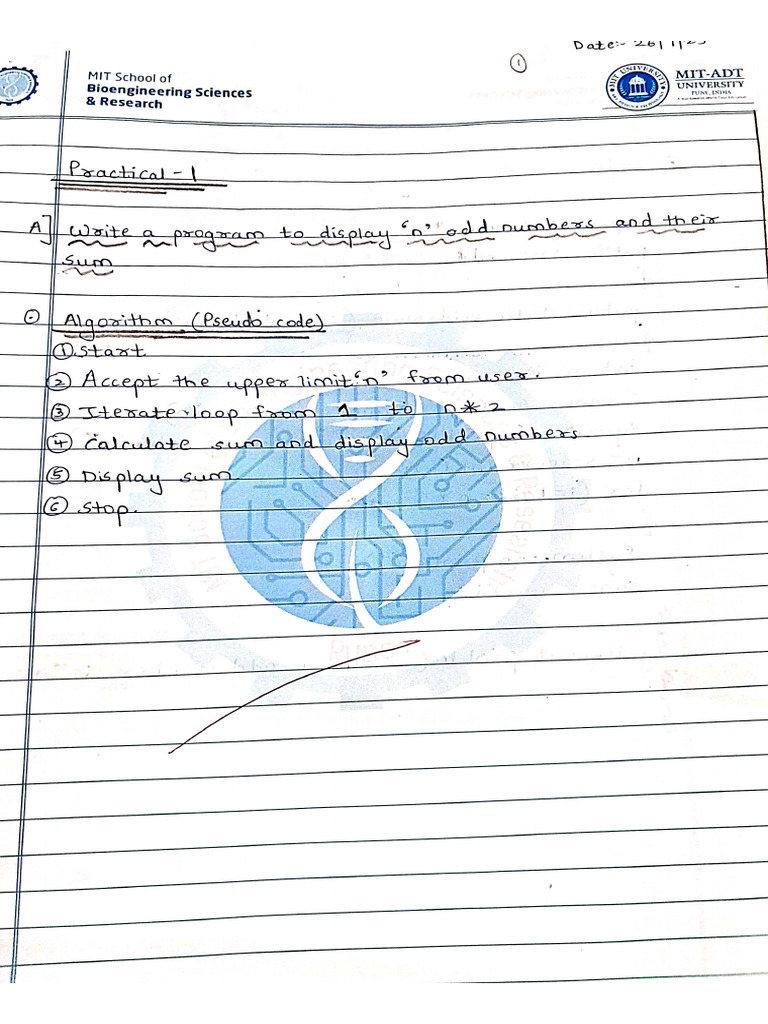 Date:- 26/1/23
1
MIT School of
Bioengineering Sciences
& Research
MIT-ADT
UNIVERSITY
PUNE, INDIA
Practical - 1
A] Write a program to display 'n' odd numbers and their
sum
Algorithm (Pseudo code)
① Start
② Accept the upper limit 'n' from user.
③ Iterate loop from 1 to n*2
④ Calculate sum and display odd numbers
⑤ Display sum
⑥ Stop.